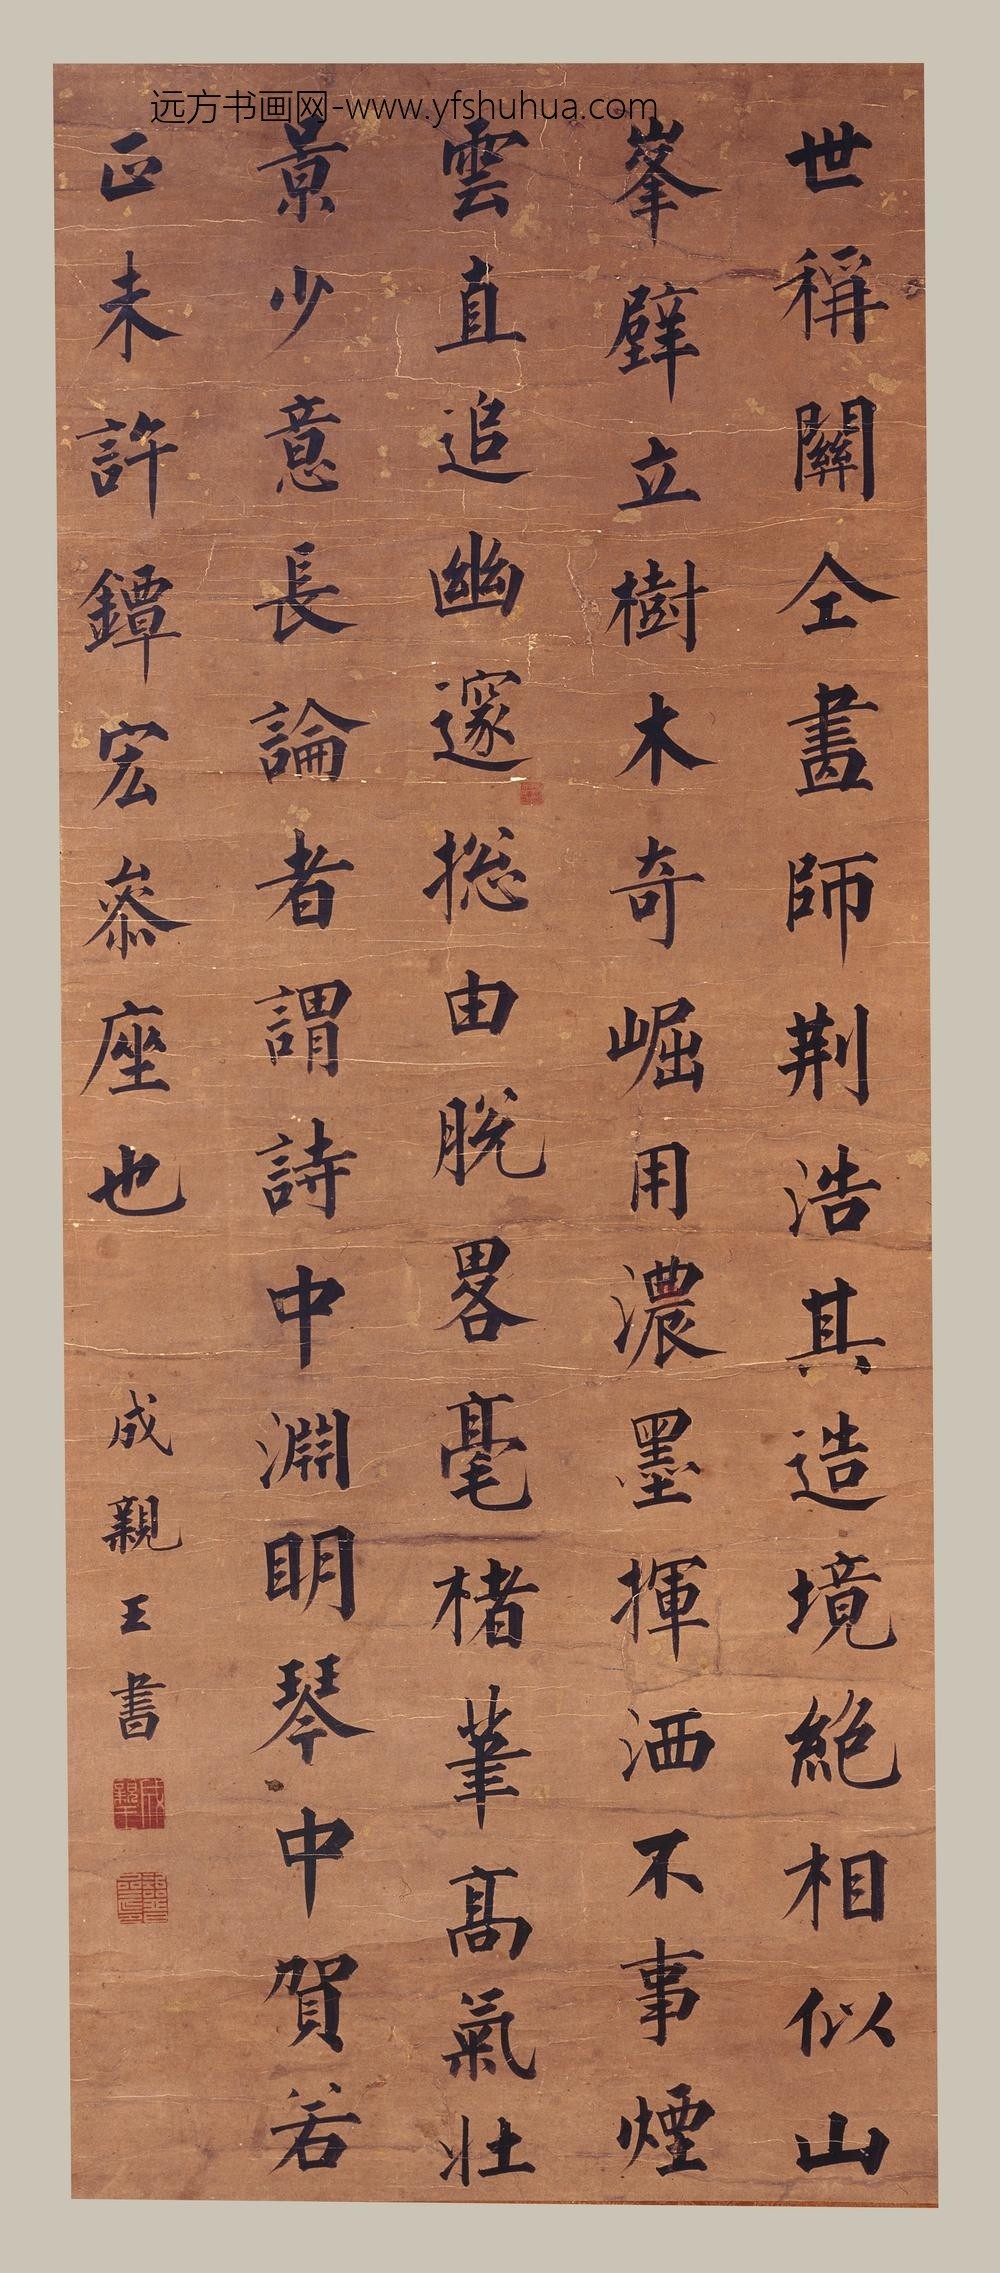 远方书画网-www.yfshuhua.com
世稱關仝畫師荆浩其造境絶相似山
峯壁立樹木奇崛用濃墨揮洒不事煙
雲直追幽邃揔由脱畧毫楮筆高氣壯
景少意長論者謂詩中淵明琴中賀若
正未許鐔宏叅座也
成親王書
成親王